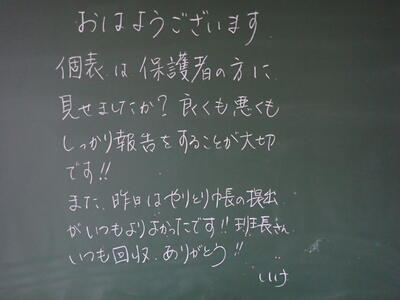 おはようございます
個表は保護者の方に
見せましたか?良くも悪くも
しっかり報告をすることが大切
です!!
また、昨日はやりとり帳の提出
がいつもよりよかったです!!班長さん
いつも回収、ありがとう!!